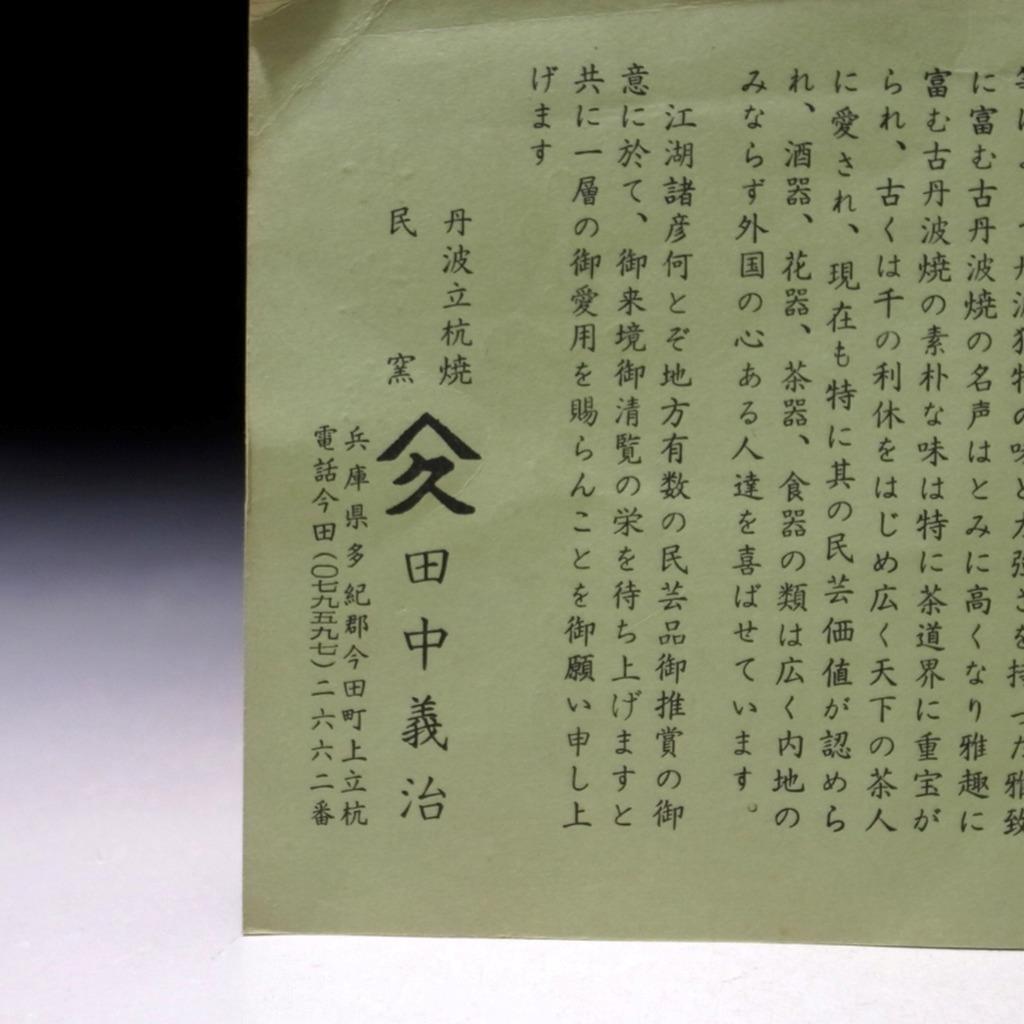 丹波独特の味と力強さを持った雅致
に富む古丹波焼の名声はとみに高くなり雅趣に
富む古丹波焼の素朴な味は特に茶道界に重宝が
られ、古くは千の利休をはじめ広く天下の茶人
に愛され、現在も特に其の民芸価値が認めら
れ、酒器、花器、茶器、食器の類は広く内地の
みならず外国の心ある人達を喜ばせています。
江湖諸彦何とぞ地方有数の民芸品御推賞の御
意に於て、御来境御清覧の栄を待ち上げますと
共に一層の御愛用を賜らんことを御願い申し上
げます
丹波立杭焼
民窯
久 田中義治
兵庫県多紀郡今田町上立杭
電話今田(〇七九五九七)二六六二番